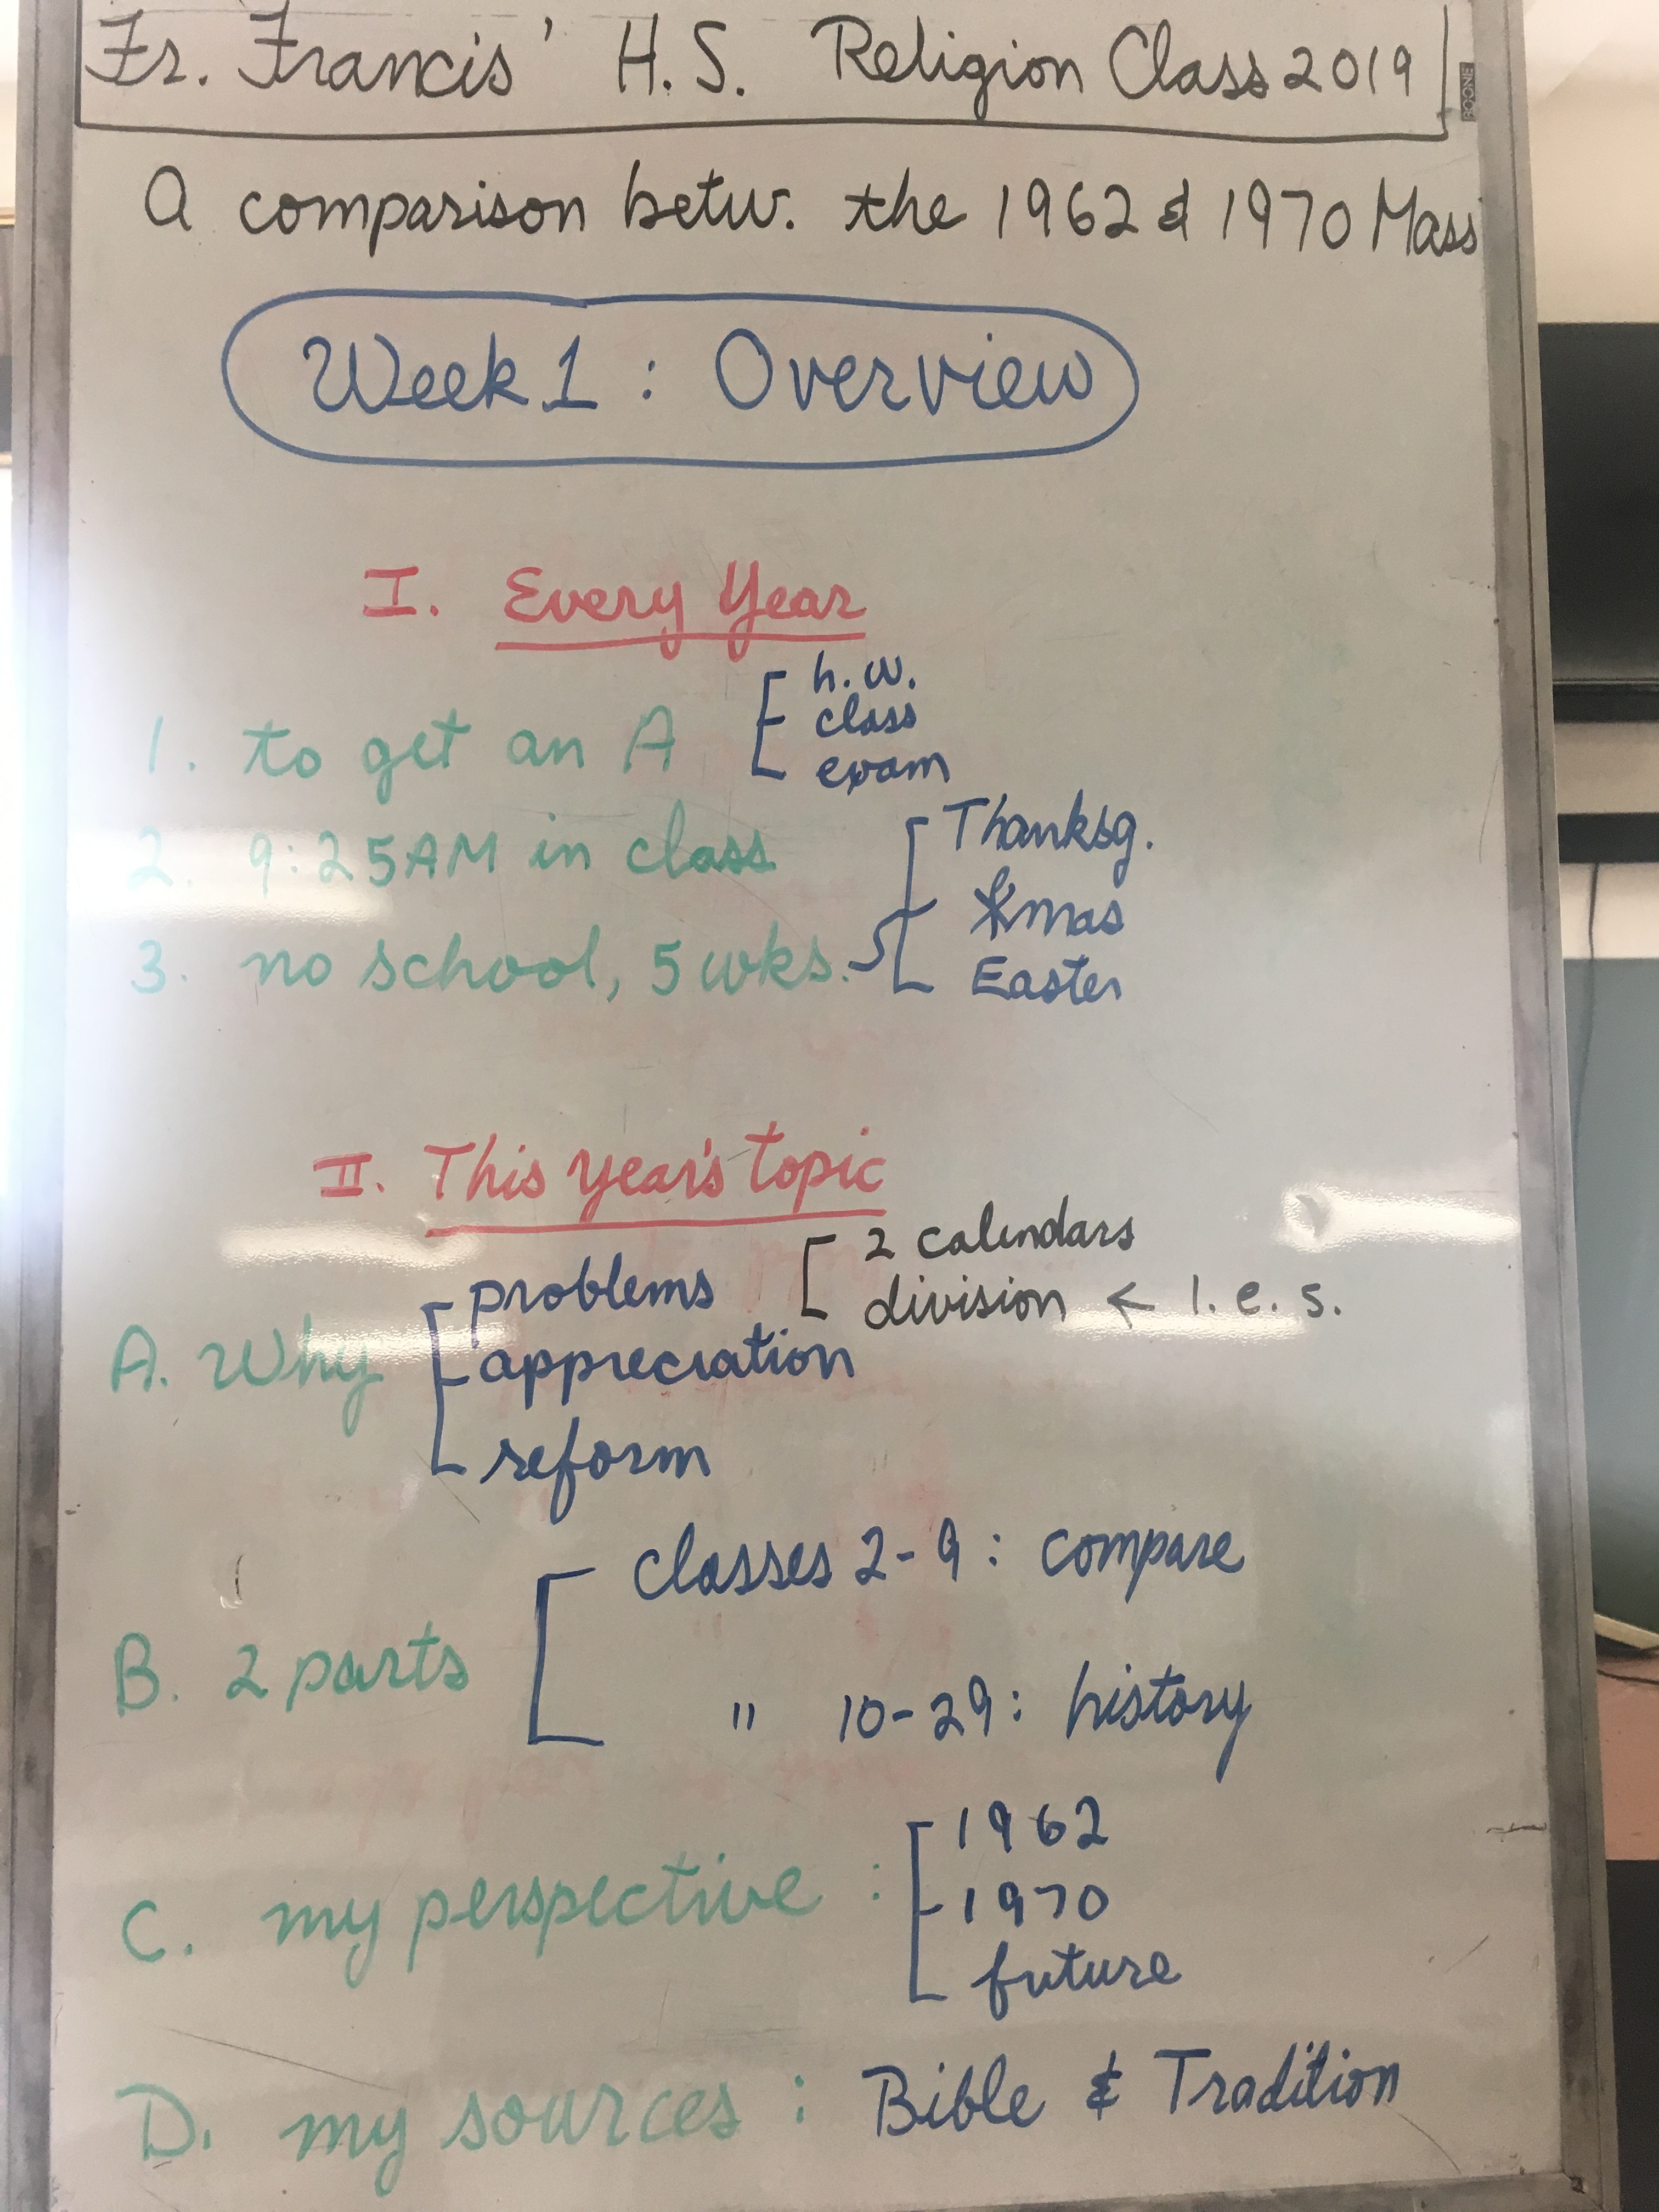 Fr. Francis' H.S. Religion Class 2019
BOONE
A comparison betw. the 1962 & 1970 Mass
Week 1 : Overview
I. Every Year
1. to get an A [ h.w.
class
exam
2. 9:25AM in class
3. no school, 5 wks. [ Thanksg.
Xmas
Easter
II. This year's topic
A. Why [ problems [ 2 calendars
division < l. e. s.
appreciation
reform
B. 2 parts [ classes 2-9: compare
" 10-29: history
C. my perspective : [ 1962
1970
future
D. my sources : Bible & Tradition